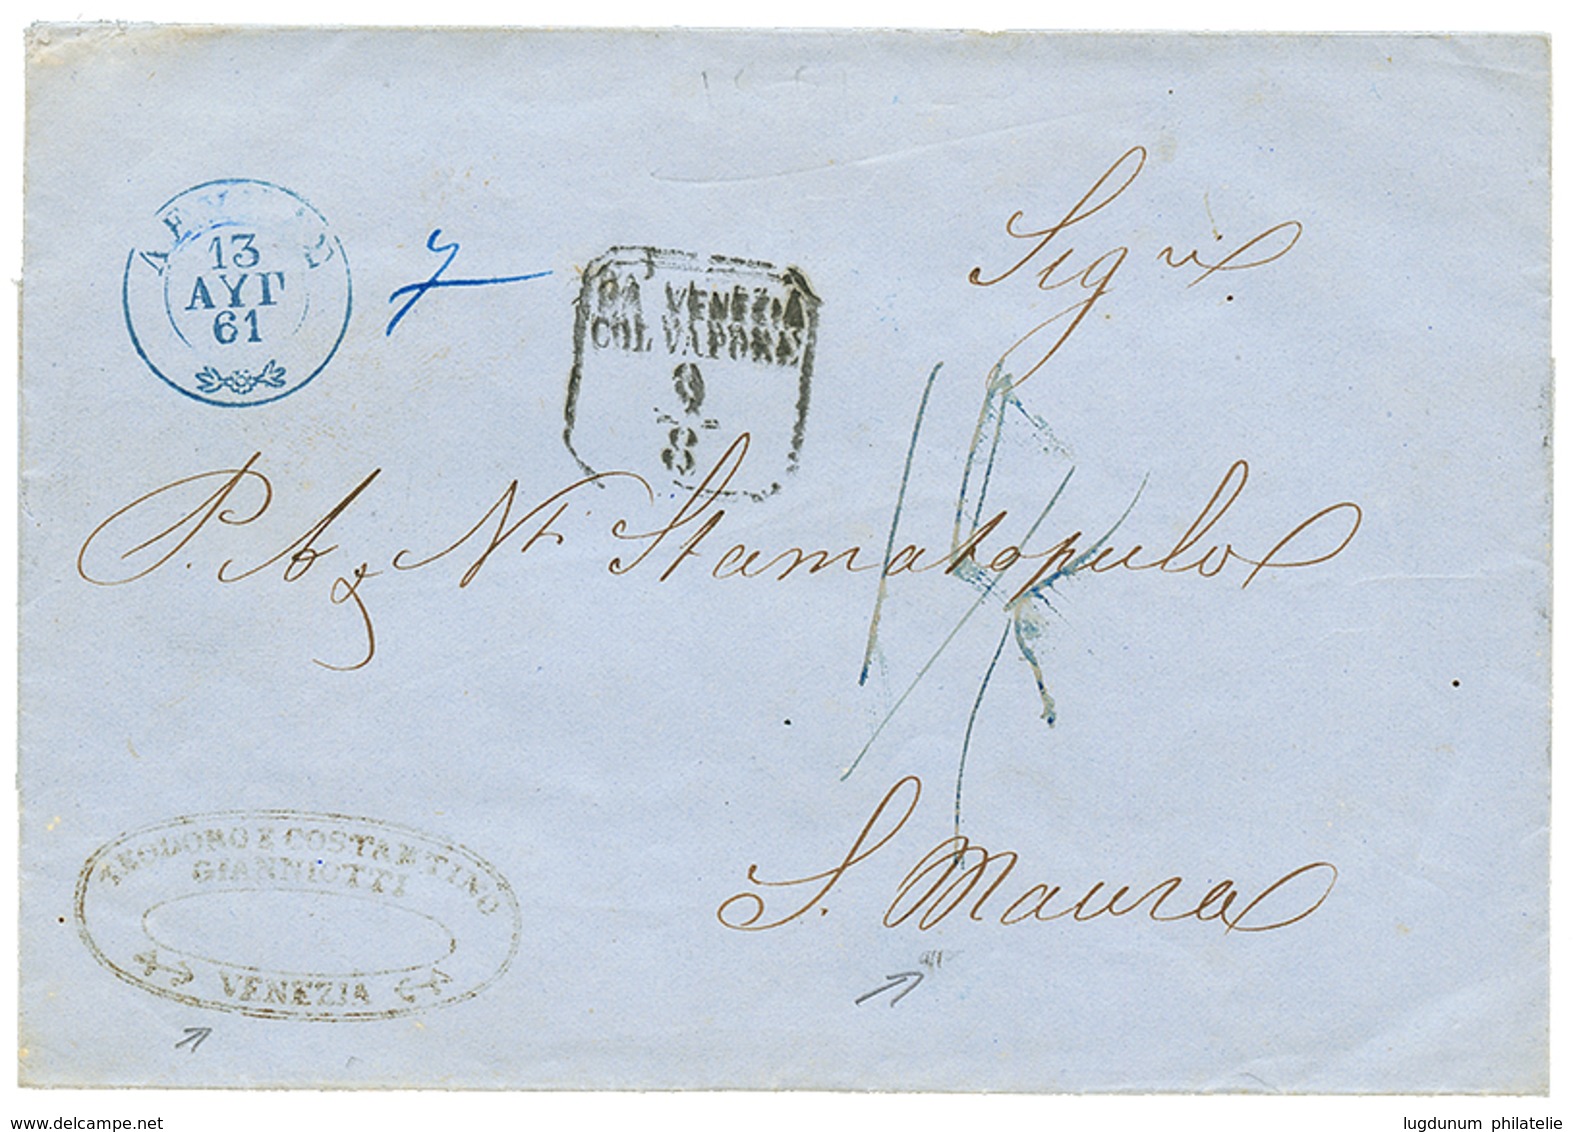 13
ΑΥΓ
61
DA VENEZIA
COL VAPORE
9
8
Sigri
P. A. Ni Stamatopulo
S. Maura
TEODORO E COSTANTINO
GIANNIOTTI
VENEZIA
delcampe.net
lugdunum philatelie